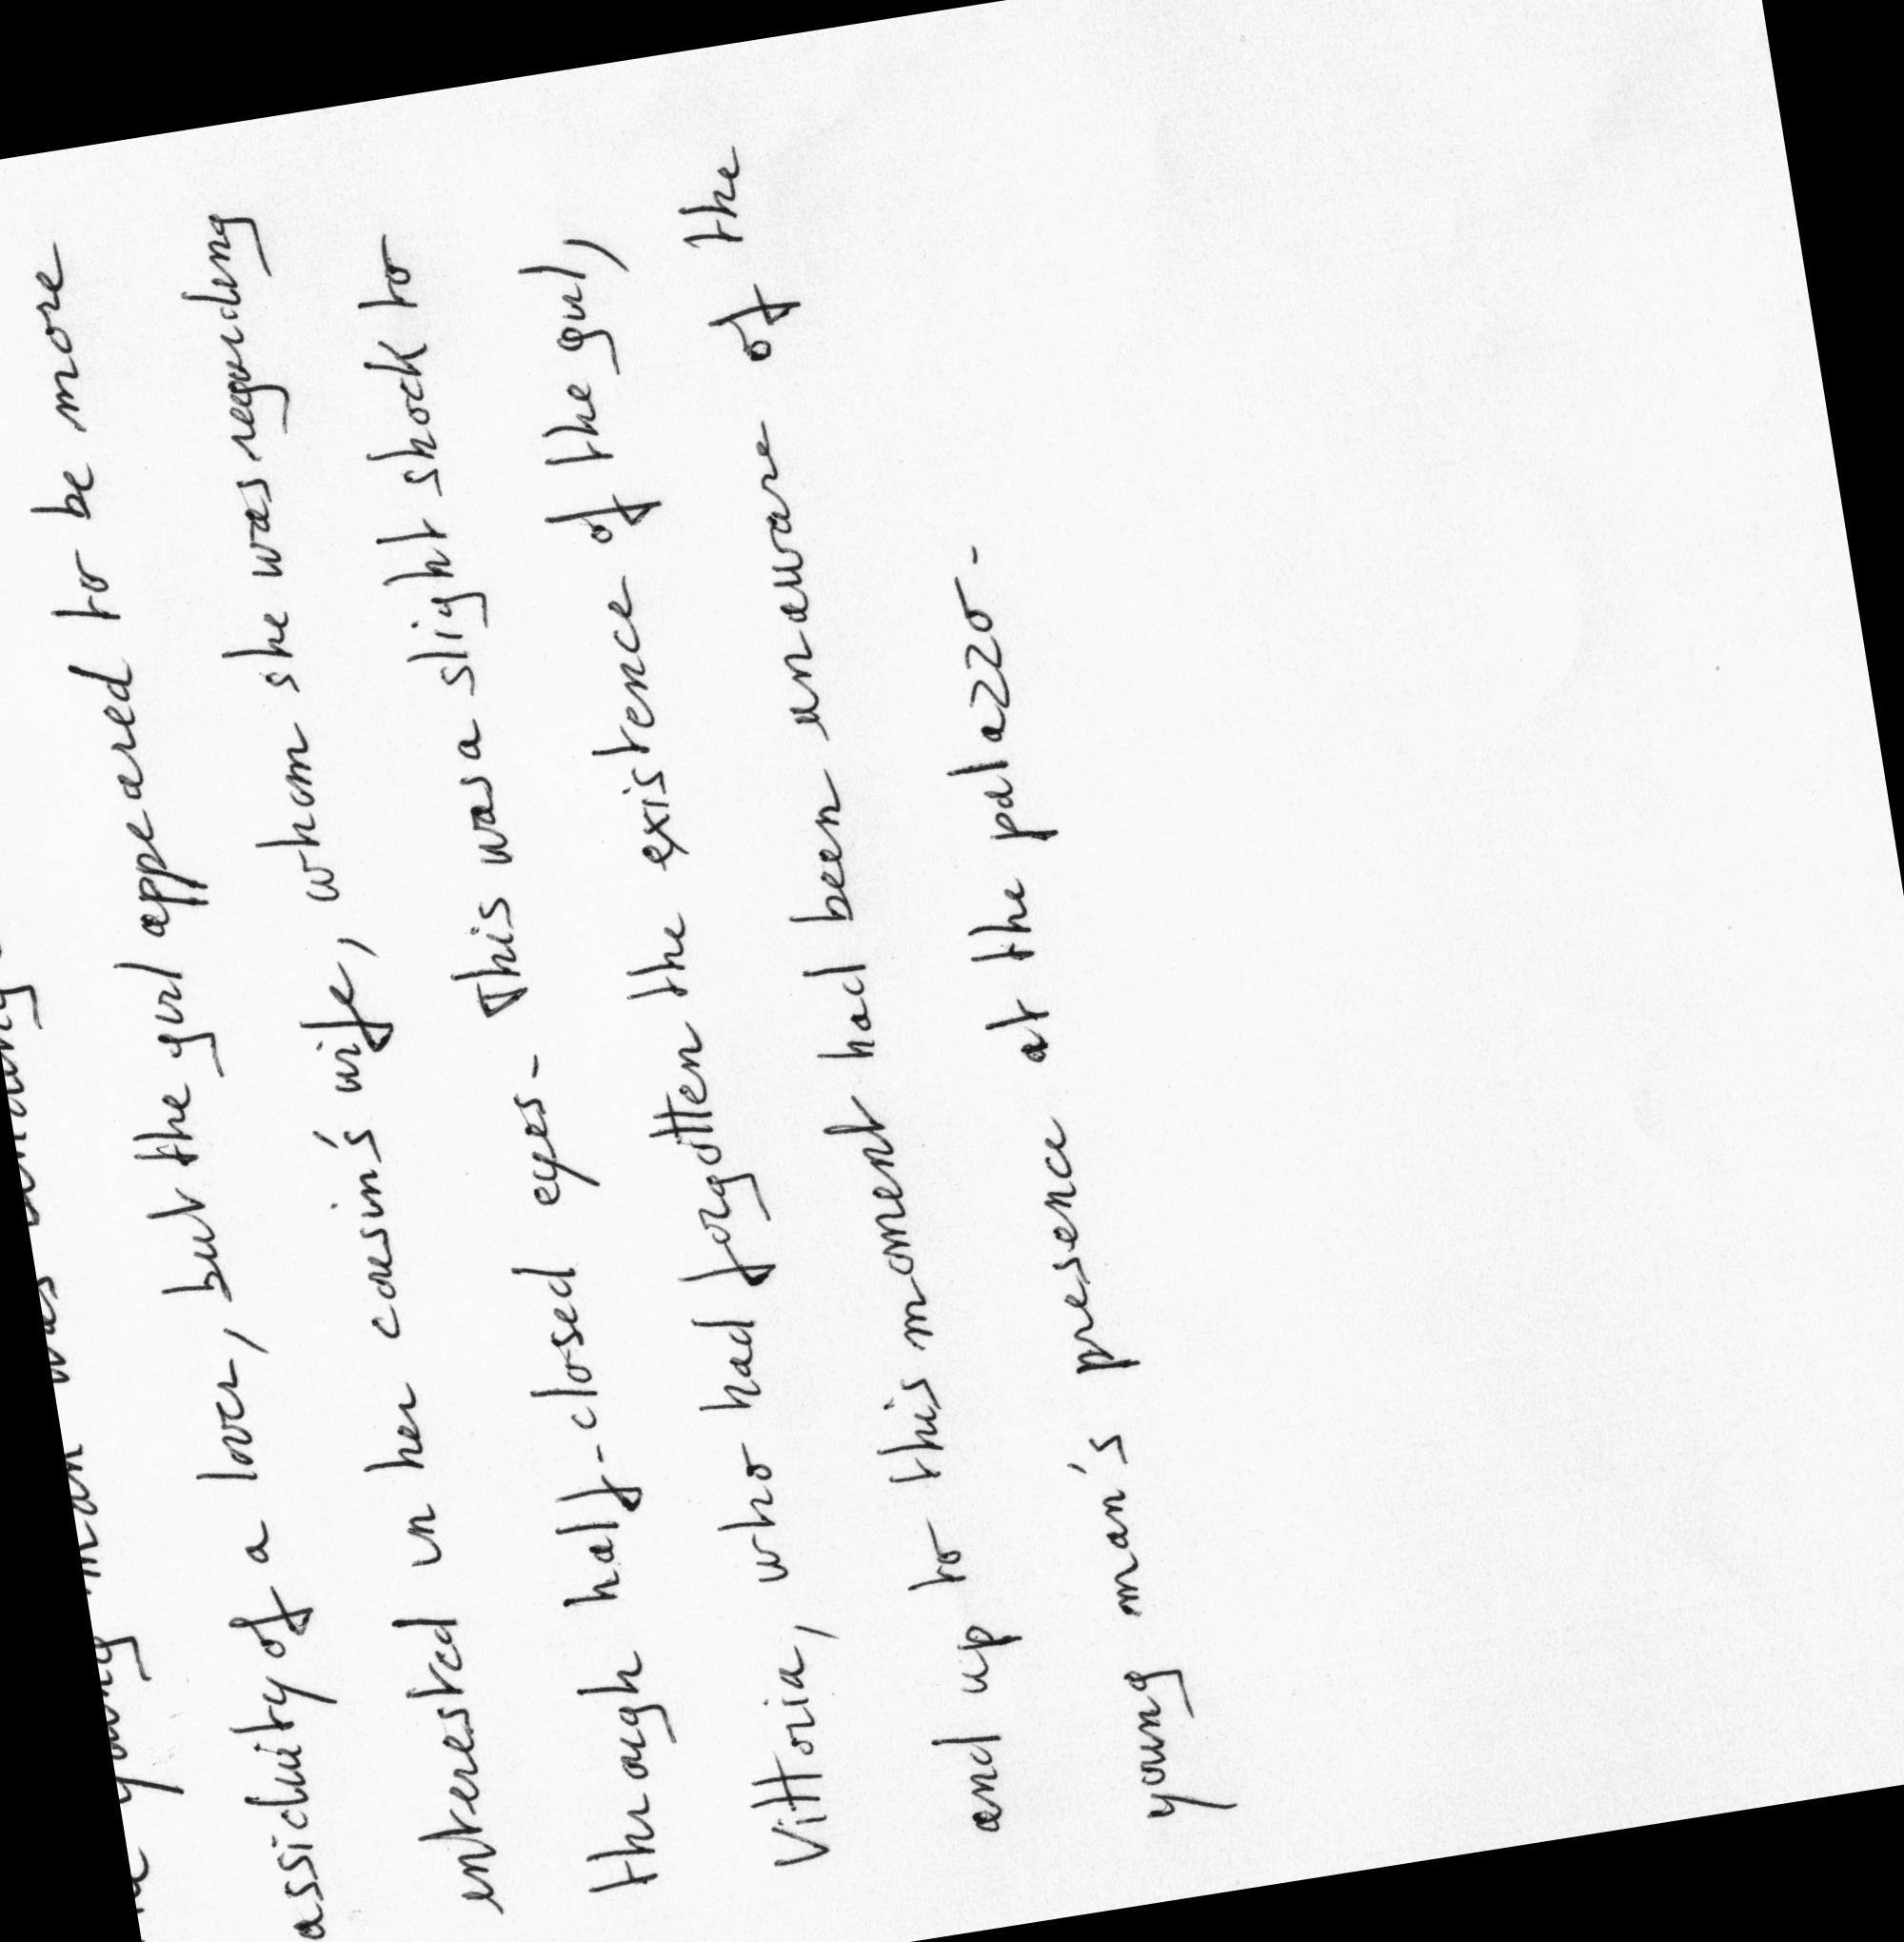 young man was
assiduity of a lover, but the girl appeared to be more
interested in her cousin's wife, whom she was regarding
through half-closed eyes. This was a slight shock to
Vittoria, who had forgotten the existence of the girl,
and up to this moment had been unaware of the
young man's presence at the palazzo.